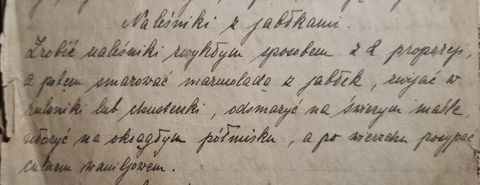 Naleśniki z jabłkami.
Zrobić naleśniki zwykłym sposobem z ½ proporcji,
a potem smarować marmoladą z jabłek, zwijać w
ruloniki lub chusteczki, odsmażyć na świeżym maśle,
ułożyć na okrągłym półmisku, a po wierzchu posypać
cukrem waniljowem.